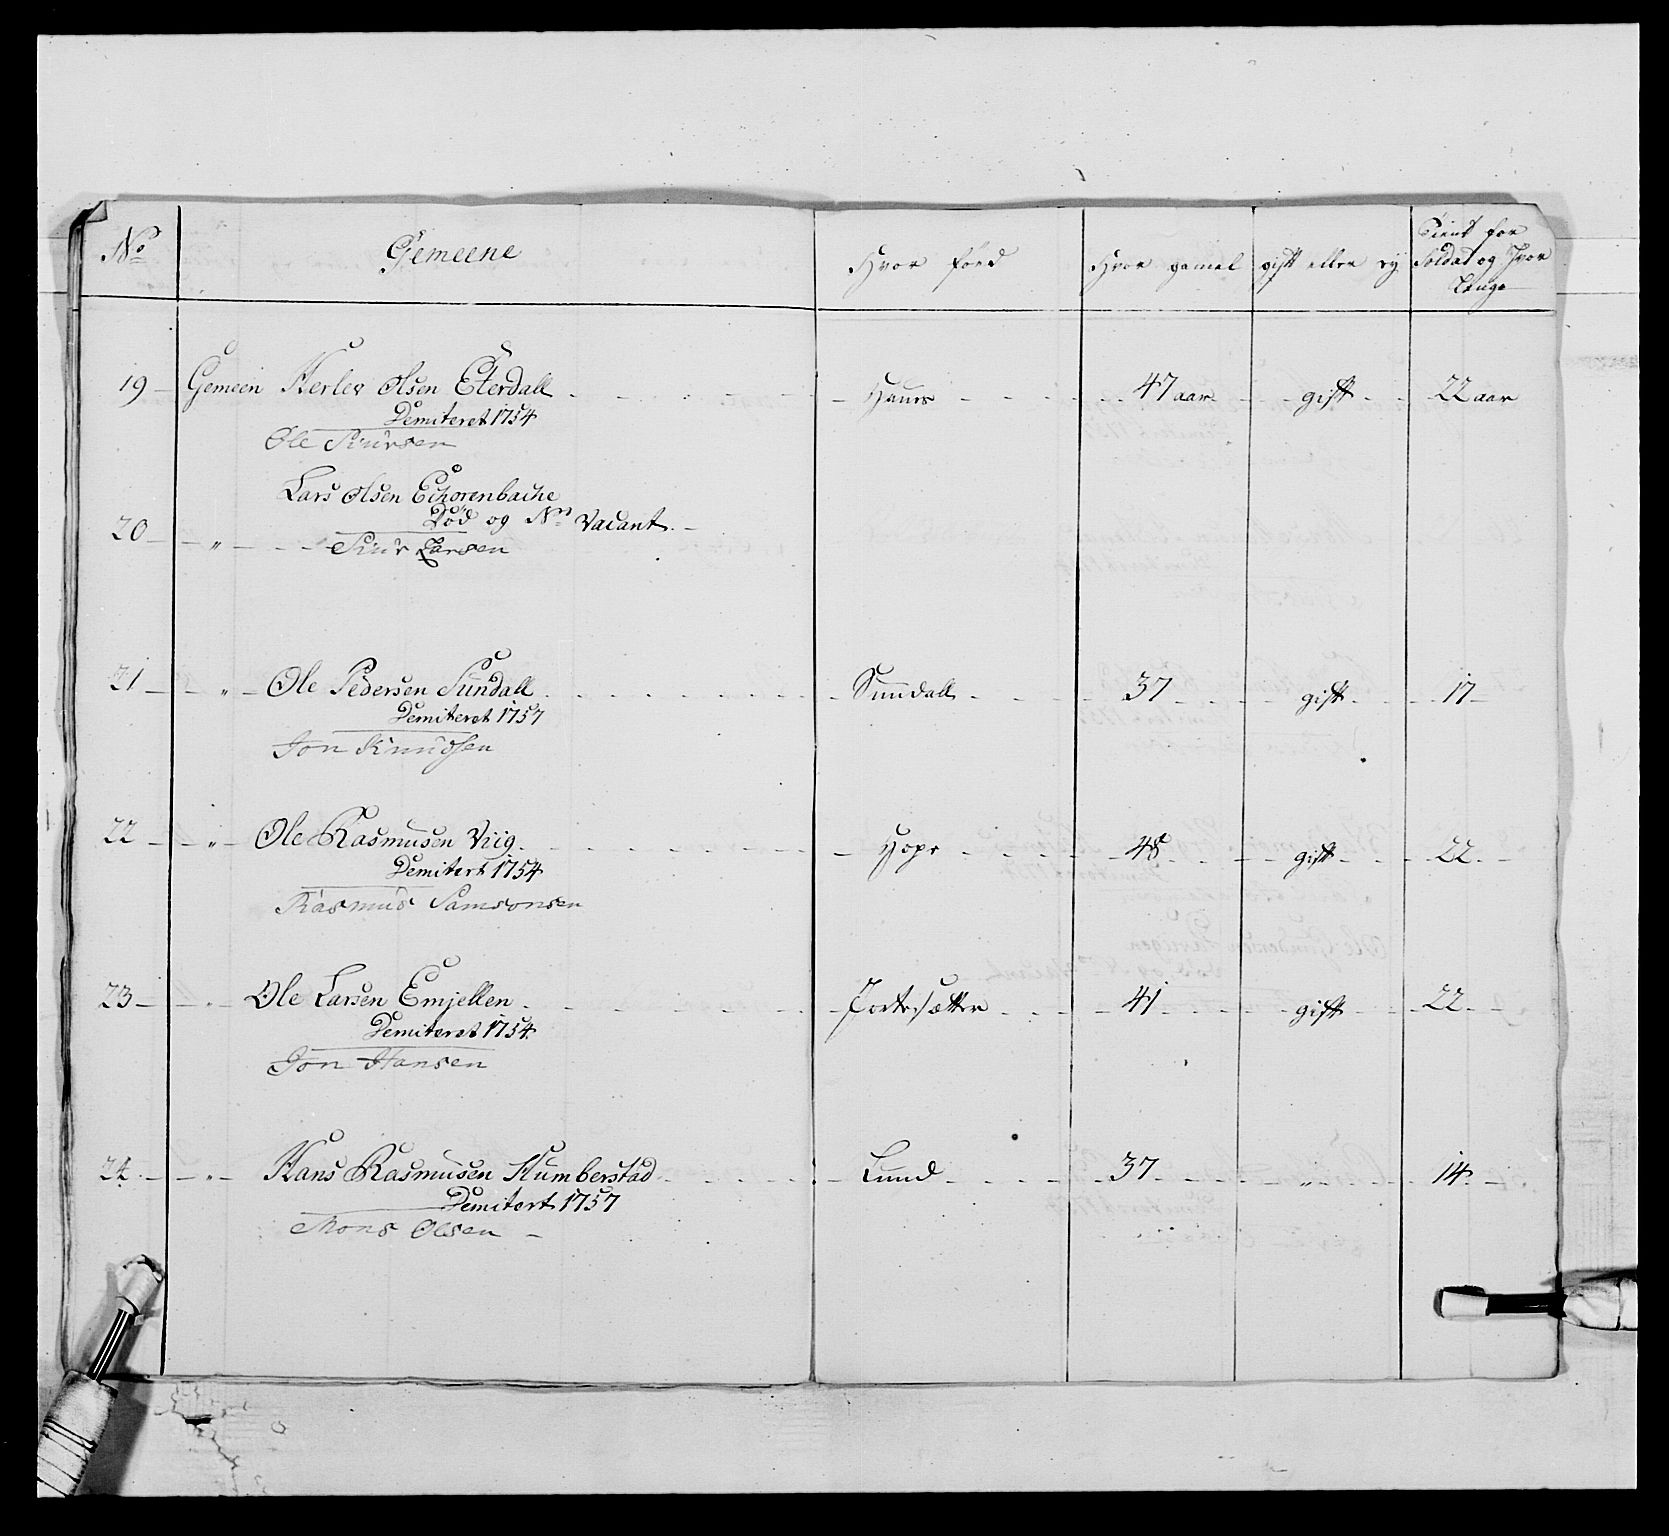 No Gemeene Hvor föed Hvor gamel gift eller ey Tient for Soldat og Hvor Længe
19 Gemeen Herlev Olsen Eterdall Hauus 47 aar gift 22 aar
Demiteret 1754
Ole Siursen
Lars Olsen Echorenbache
Död og No Vacant
20 " Siur Larsen
21 " Ole Pedersen Sundall Sundall 37 gift 17
Demiteret 1757
Jon Knudsen
22 " Ole Rasmusen Viig Hope 48 gift 22
Demitert 1754
Rasmus Samsonsen
23 " Ole Larsen Emjellen 41 gift 22
Demiteret 1754
Jon Hansen
24 " Hans Rasmusen Humberstad Lund 37 " 14
Demitert 1757
Mons Olsen